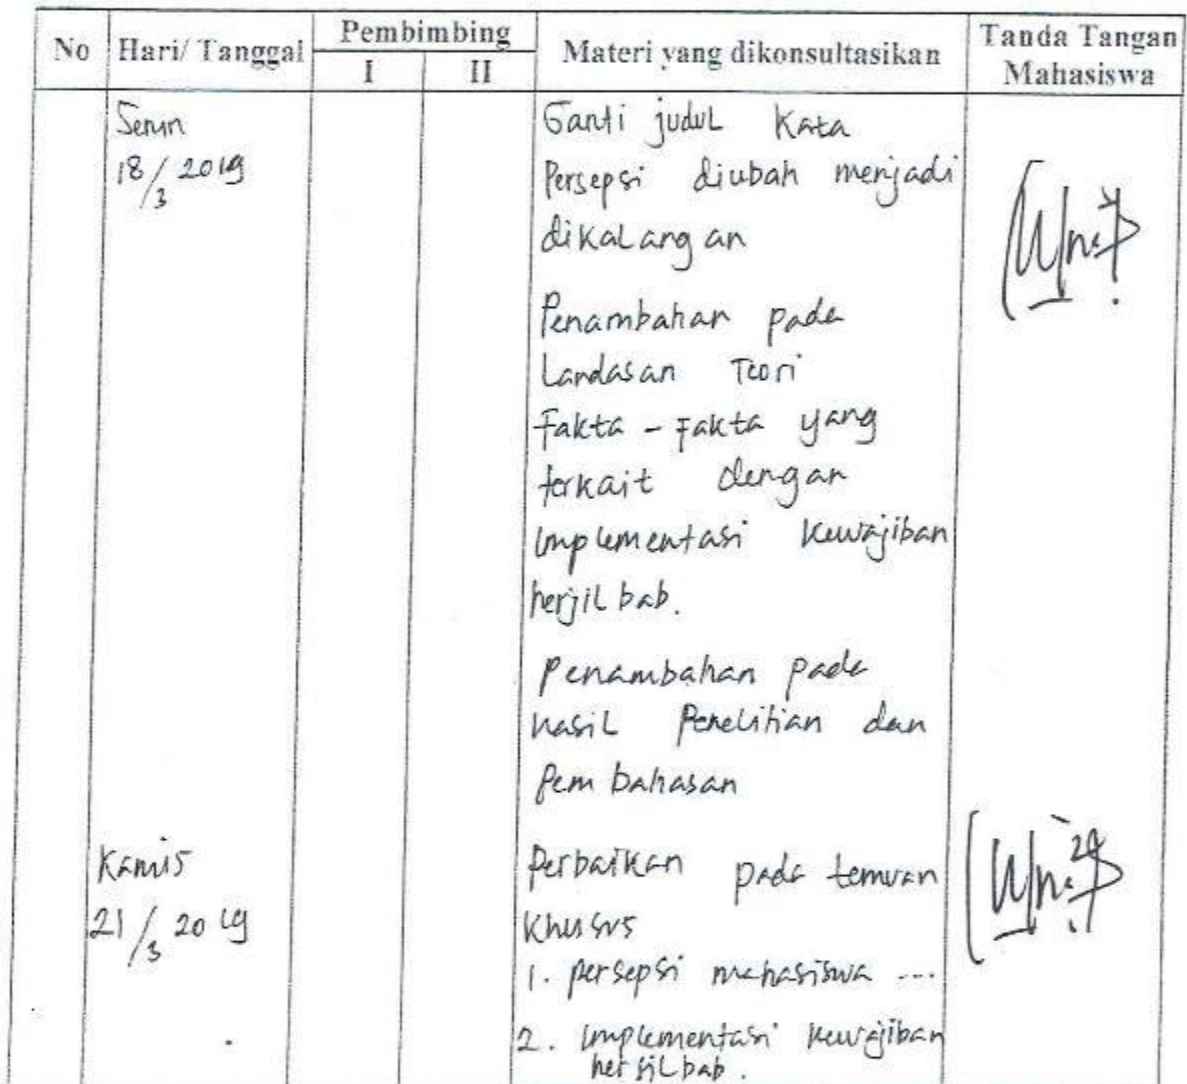 No Hari/ Tanggal Pembimbing Materi yang dikonsultasikan Tanda Tangan
I II Mahasiswa
Senin Ganti judul Kata
18/3 2019 Persepsi diubah menjadi
dikalangan
Penambahan pada
Landasan Teori
Fakta - Fakta yang
terkait dengan
implementasi kewajiban
berjilbab.
Penambahan pada
hasil Penelitian dan
Pembahasan
Kamis Perbaikan pada temuan
21/3 2019 Khusus
1. persepsi mahasiswa ...
2. implementasi kewajiban
berjilbab.